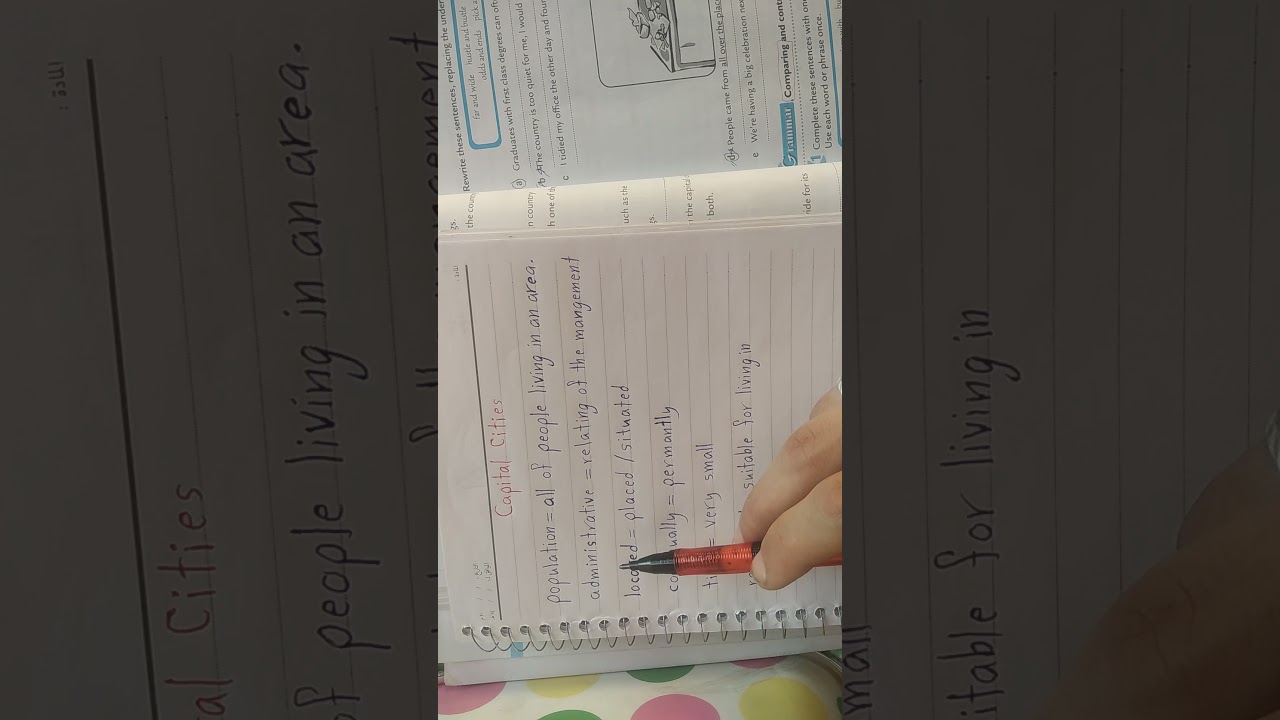 Capital Cities
population = all of people living in an area.
administrative = relating of the mangement
located = placed / situated
= permantly
= very small
suitable for living in
Rewrite these sentences, replacing the under
far and wide hustle and bustle
odds and ends pick a
a Graduates with first class degrees can ofte
b The country is too quiet for me, I would
c I tidied my office the other day and foun
d People came from all over the place
e We're having a big celebration nex
Grammar Comparing and cont
1 Complete these sentences with one
Use each word or phrase once.
gs.
the coun
n country
h one of th
uch as the
gs.
n the capital
both.
ride for its